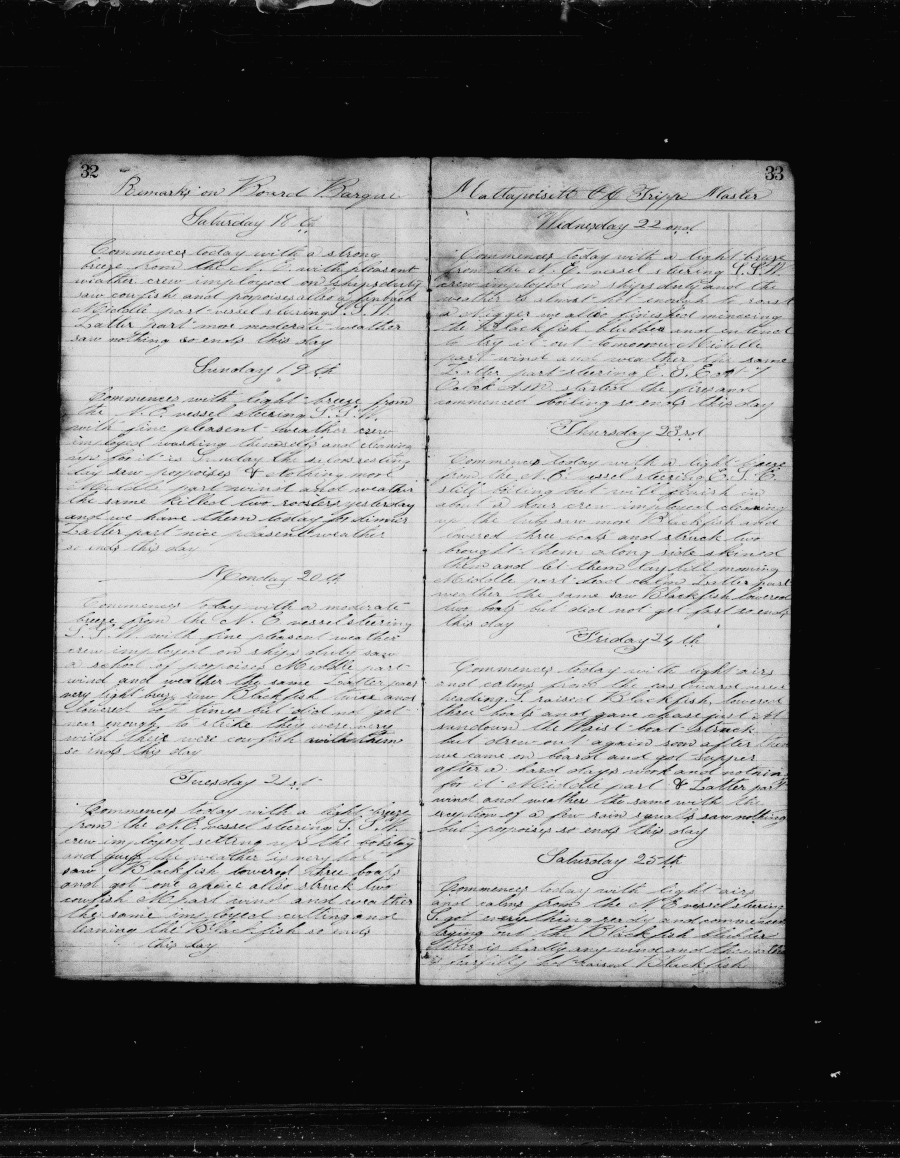 32
Remarks on Board Barque
Saturday 18th
Commences today with a strong
breeze from the N. E. with pleasent
weather crew imployed on ships duty
saw cowfish and popoises also a finback
Middle part vessel steering S.S.W.
Latter part mor moderate weather
saw nothing so ends this day
Sunday 19th
Commences with light breeze from
the N.E. vessel steering S.S.W.
with fine pleasent weather crew
imployed washing themselfs and cleaning
up for it is Sunday the resting
day saw popoises & nothing more
Middle part wind and weather
the same killed two roosters yesterday
and we have them today for dinner
Latter part nice pleasent weather
so ends this day
Monday 20th
Commences today with a moderate
breeze from the N. E. vessel steering
S.S.W with fine pleasent weather
crew imployed on ships duty saw
a school of popoises Middle part
wind and weather the same Latter part
very light breeze saw Blackfish and
lowered times but did not get
near enough to strike they were very
wild their were cowfish with them
so ends this day
Tuesday 21st
Commences today with a light breeze
from the N.E. vessel steering S.S.W.
crew imployed setting up the bobstay
and guys the weather is very hot
saw Blackfish lowered three boats
and got one apiece also struck two
cowfish M part wind and weather
the same imployed cutting and
leaning the Blackfish so ends
this day
33
Mattapoisett Tripp Master
Wednesday 22ond
Commences today with a light breeze
from the N. E. vessel steering S.S.W.
crew imployed in ships duty and the
weather is almost hot enough to roast
a Nigger we allso finished minceing
the Blackfish blubber and entend
to try it out tomorrow Middle
part wind and weather the same
Latter part steering E.S.E at 7
Oclock A.M. started the fires and
commenced boiling so ends this day
Thursday 23rd
Commences today with a light breeze
from the N.E. vessel steering E.S.E.
still boiling but will finish in
about a hour crew imployed cleaning
up the saw mor Blackfish and
lowered three boats and struck two
brought them along side skined
them and let them lay till morning
Middle part dead calm Latter part
weather the same saw Blackfish lowered
two boats but did not get fast so ends
this day
Friday 24th
Commences today with light airs
and calms from the eastward vessel
heading S. raised Blackfish, lowered
three boats and gave chase just at
sundown the Waist boat struck
but drew out again soon after then
we came on board and got supper
after a hard days work and nothing
for it Middle part & Latter part
wind and weather the same with the
exeption of a few rain squalls saw nothing
but popoises so ends this day
Saturday 25th
Commences today with light airs
and calms from the N.E vessel steering
S. got everything redy and commenced
trying out the Blackfish blubber
their is hardly any wind and the weather
is hot raised Blackfish